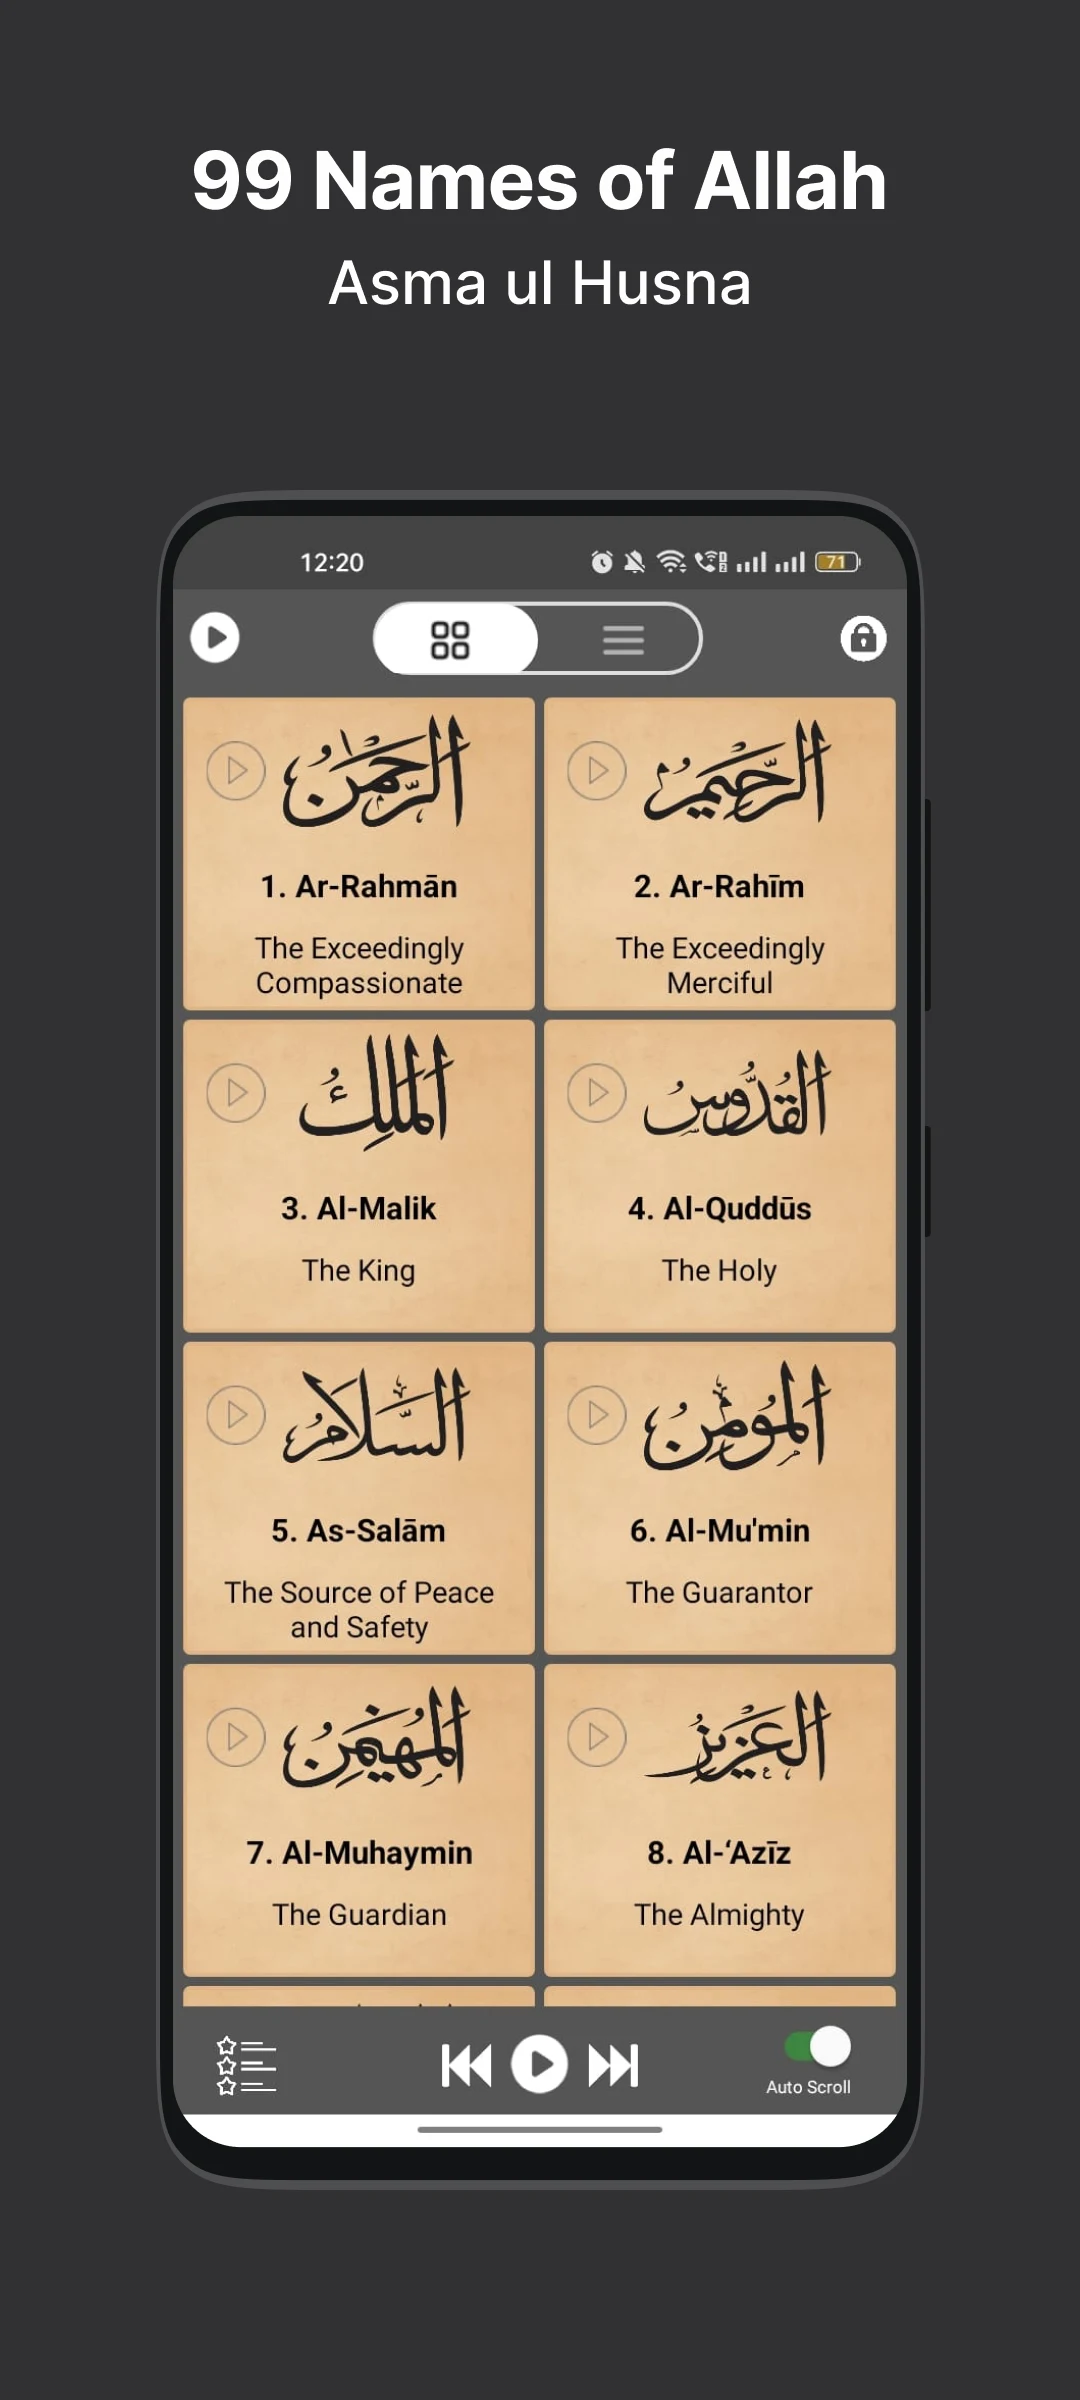 99 Names of Allah
Asma ul Husna
12:20
71
الرَّحْمَٰنُ
الرَّحِيمُ
1. Ar-Rahmān
2. Ar-Rahīm
The Exceedingly
Compassionate
The Exceedingly
Merciful
المَلِكُ
القُدُّوسُ
3. Al-Malik
4. Al-Quddūs
The King
The Holy
السَّلَامُ
المُؤْمِنُ
5. As-Salām
6. Al-Mu'min
The Source of Peace
and Safety
The Guarantor
المُهَيْمِنُ
العَزِيزُ
7. Al-Muhaymin
8. Al-‘Azīz
The Guardian
The Almighty
Auto Scroll